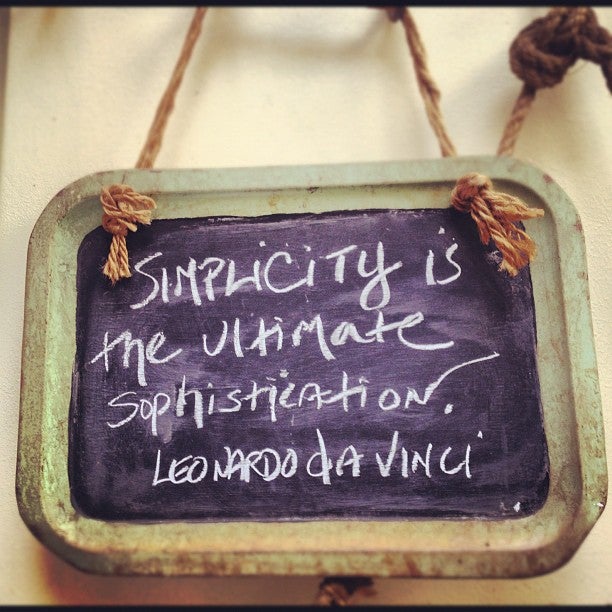 SIMPLiCiTY iS
the ULtiMate
SophisticAtion.
LEONARDO dA ViNCi